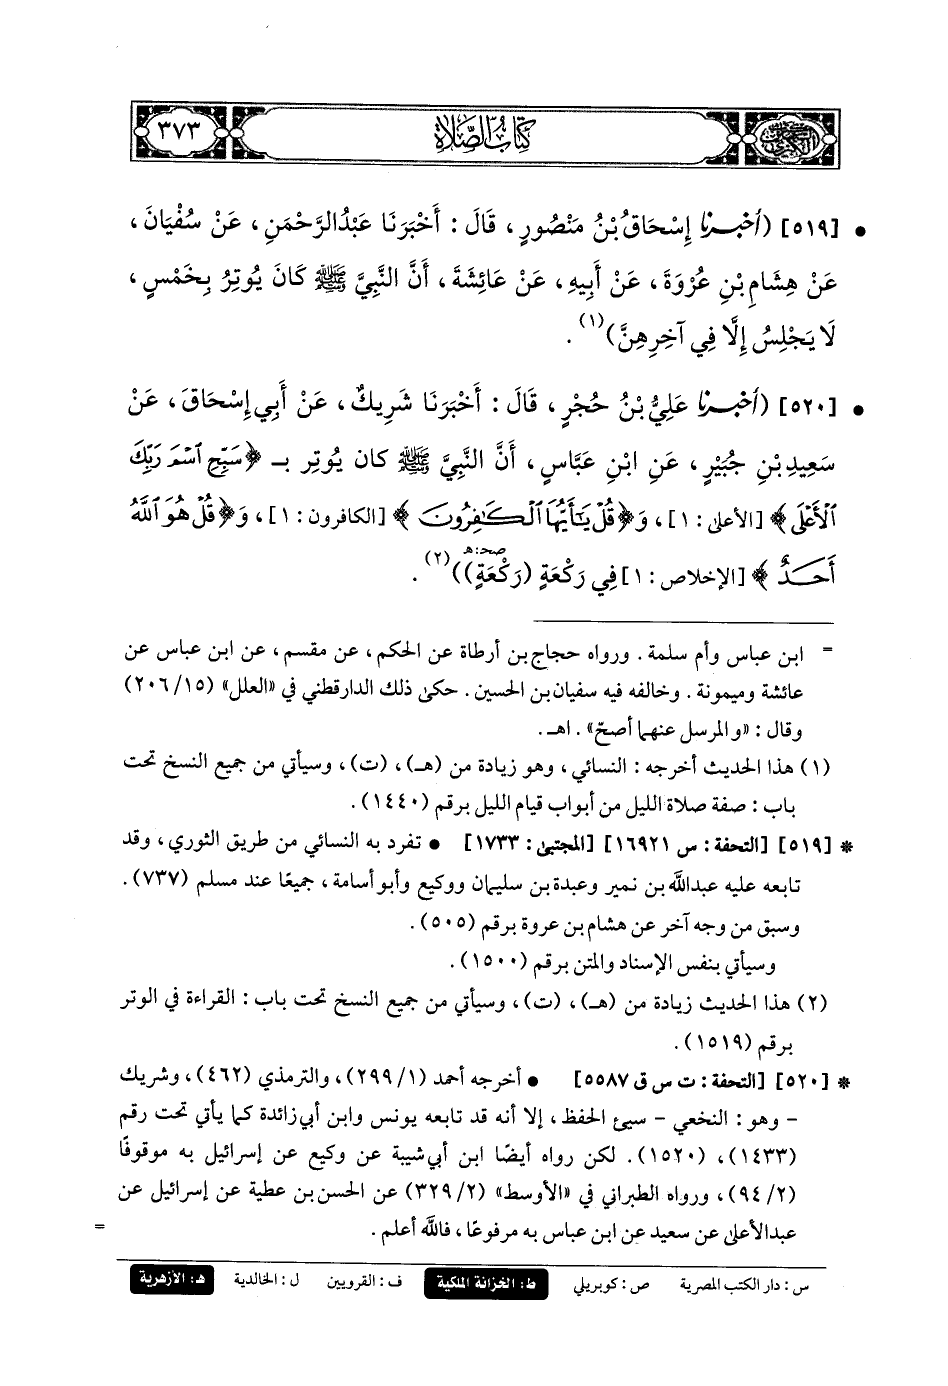 كِتَابُ الصَّلَاة
٣٧٣
• [٥١٩] (أَخْبَرَنَا إِسْحَاقُ بْنُ مَنْصُورٍ، قَالَ: أَخْبَرَنَا عَبْدُالرَّحْمَنِ، عَنْ سُفْيَانَ،
عَنْ هِشَامِ بْنِ عُرْوَةَ، عَنْ أَبِيهِ، عَنْ عَائِشَةَ، أَنَّ النَّبِيَّ ﷺ كَانَ يُوتِرُ بِخَمْسٍ،
لَا يَجْلِسُ إِلَّا فِي آخِرِهِنَّ)(١).
• [٥٢٠] (أَخْبَرَنَا عَلِيُّ بْنُ حُجْرٍ، قَالَ: أَخْبَرَنَا شَرِيكٌ، عَنْ أَبِي إِسْحَاقَ، عَنْ
سَعِيدِ بْنِ جُبَيْرٍ، عَنِ ابْنِ عَبَّاسٍ، أَنَّ النَّبِيَّ ﷺ كان يُوتِر بـ ﴿سَبِّحِ ٱسْمَ رَبِّكَ
ٱلْأَعْلَى﴾ [الأعلى: ١]، وَ﴿قُلْ يَٰٓأَيُّهَا ٱلْكَٰفِرُونَ﴾ [الكافرون: ١]، وَ﴿قُلْ هُوَ ٱللَّهُ
أَحَدٌ﴾ [الإخلاص: ١] فِي رَكْعَةٍ (رَكْعَةٍ)صحـ: هـ)(٢).
= ابن عباس وأم سلمة. ورواه حجاج بن أرطاة عن الحكم، عن مقسم، عن ابن عباس عن
عائشة وميمونة. وخالفه فيه سفيان بن الحسين. حكى ذلك الدارقطني في «العلل» (١٥/٢٠٦)
وقال: «والمرسل عنهما أصحّ». اهـ.
(١) هذا الحديث أخرجه: النسائي، وهو زيادة من (هـ)، (ت)، وسيأتي من جميع النسخ تحت
باب: صفة صلاة الليل من أبواب قيام الليل برقم (١٤٤٠).
* [٥١٩] [التحفة: س ١٦٩٢١] [المجتبى: ١٧٣٣] • تفرد به النسائي من طريق الثوري، وقد
تابعه عليه عبدالله بن نمير وعبدة بن سليمان ووكيع وأبو أسامة، جميعًا عند مسلم (٧٣٧).
وسبق من وجه آخر عن هشام بن عروة برقم (٥٠٥).
وسيأتي بنفس الإسناد والمتن برقم (١٥٠٠).
(٢) هذا الحديث زيادة من (هـ)، (ت)، وسيأتي من جميع النسخ تحت باب: القراءة في الوتر
برقم (١٥١٩).
* [٥٢٠] [التحفة: ت س ق ٥٥٨٧] • أخرجه أحمد (١/٢٩٩)، والترمذي (٤٦٢)، وشريك
- وهو: النخعي - سيئ الحفظ، إلا أنه قد تابعه يونس وابن أبي زائدة كما يأتي تحت رقم
(١٤٣٣)، (١٥٢٠). لكن رواه أيضًا ابن أبي شيبة عن وكيع عن إسرائيل به موقوفًا
(٢/٩٤)، ورواه الطبراني في «الأوسط» (٢/٣٢٩) عن الحسن بن عطية عن إسرائيل عن
عبدالأعلى عن سعيد عن ابن عباس به مرفوعًا، فالله أعلم. =
س: دار الكتب المصرية ص: كوبريلي ط: الخزانة الملكية ف: القرويين ل: الخالدية هـ: الأزهرية